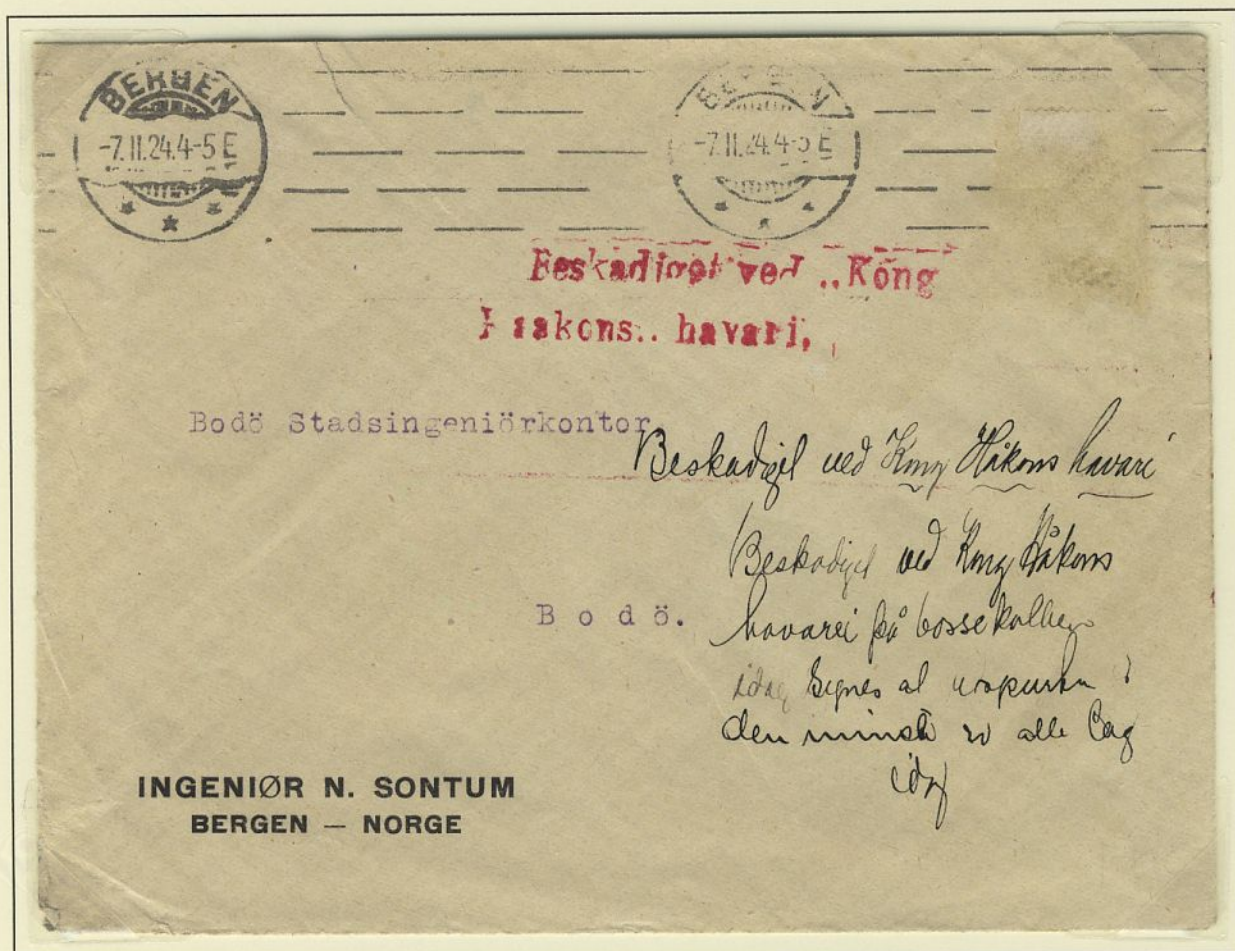 BERGEN
-7.II.24.4-5 E
BERGEN
-7.II.24.4-5 E
Beskadiget ved ,,Kong
Haakons,, havari,
Bodö Stadsingeniörkontor
Beskadiget ved Kong Håkons havari
Beskadiget ved Kong Håkons
Bodö.
havarei på
idag
den minste alle
idag
INGENIØR N. SONTUM
BERGEN — NORGE